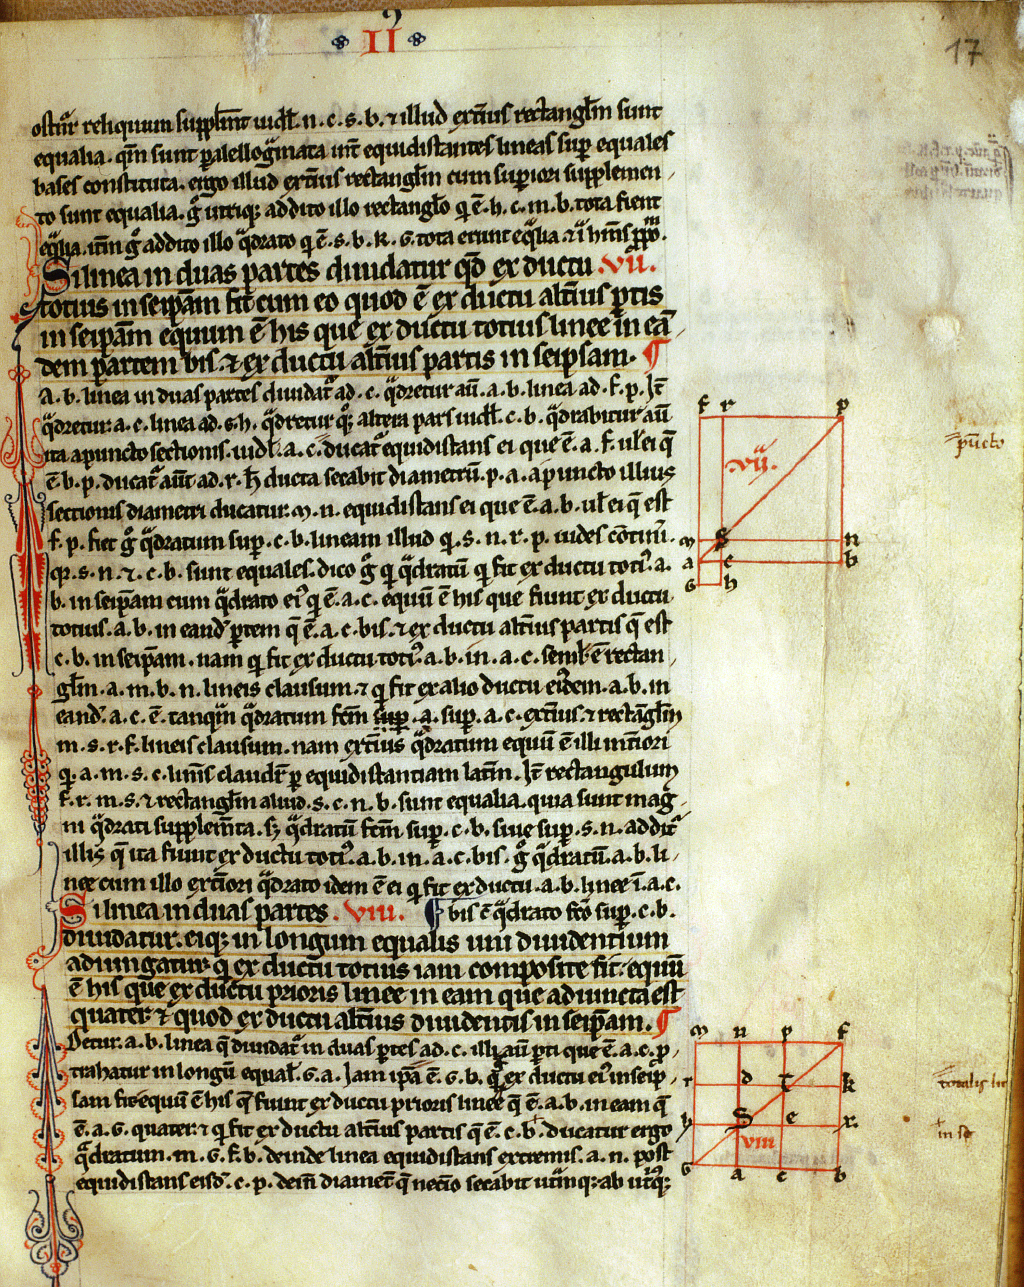 II
17
reliquum supplm̄t uidl̄. n. c. s. b. ⁊ illud exti᷑us rectangl̄m sunt
equalia. qm̄ sunt ꝑalellogͣmata int̄ equidistantes lineas suꝑ equales
bases constituta. ergo illud exti᷑us rectangl̄m cum suꝑiori supplemen
to sunt equalia. gͦ utrique addito illo rectangl̄o q ē. h. c. m. b. tota fient
addito illo qͣdrato q ē. s. b. k. G. tota erunt eqͣlia
Si linea in duas partes diuidatur qd̄ ex ductu .vii.
totius in seip̄am fit cum eo quod ē ex ductu alti᷑us ꝑtis
in seip̄am equum ē his que ex ductu totius linee in eā
dem partem bis. ⁊ ex ductu alti᷑us partis in seipsam. ¶
A. b. linea in duas partes diuidat᷑ ad. c. qͣdretur au᷑. a. b. linea ad. f. p. It̄
qͣdretur. a. c. linea ad. G. h. qͣdretur qꝫ altera pars uidl̄. c. b. qͣdrabitur au᷑
ita a puncto sectionis. uidl̄. a. c. ducat᷑ equidistans ei que ē. a. f. ul̄ ei q̄
ē. b. p. ducat᷑ au᷑t ad. r. h̄ ducta secabit diametrū. p. a. a puncto illius
sectionis diametri ducatur. m. n. equidistans ei que ē. a. b. ul̄ ei q̄ est
f. p. fiet gͦ qͣdratum suꝑ. c. b. lineam illud q. s. n. r. p. uides
qꝫ. s. n. ⁊. c. b. sunt equales. dico gͦ q qͣdratū q fit ex ductu toti᷒. a.
b. in seip̄am cum qͣdrato ei᷒ q ē. a. c. equū ē his que fiunt ex ductu
totius. a. b. in eand̄ ꝑtem q̄ ē. a. c. bis. ⁊ ex ductu alti᷑us partis q̄ est
c. b. in seip̄am. nam q fit ex ductu toti᷒. a. b. in. a. c. ē rectan
gl̄m. a. m. b. n. lineis clausum. ⁊ q fit ex alio ductu a. b. in
eand̄. a. c. ē. tanqͣm qͣdratum fc̄m suꝑ. a. suꝑ. a. c. exti᷑us. ⁊ rectāgl̄m
m. s. r. f. lineis clausum. nam exti᷑us qͣdratum equū ē illi int̄iori
q. a. m. s. c. claudit᷑ ꝑ equidistantiam lat̄m. It̄ rectangulum
f. r. m. s. ⁊ rectangl̄m aliud. s. c. n. b. sunt equalia. quia sunt mag
ni qͣdrati supplem̄ta. s; qͣdratū fc̄m suꝑ. c. b. siue suꝑ. s. n. addit᷑
illis q̄ ita fiunt ex ductu toti᷒. a. b. in. a. c. bis. gͦ qͣdratū. a. b. li
nee cum illo ext̄iori qͣdrato idem ē ei q fit ex ductu. a. b. linee ī. a. c.
Si linea in duas partes .viii. ¶ bis ⁊ qͣdrato fc̄o suꝑ. c. b.
diuidatur. eiqꝫ in longum equalis uni diuidentium
adiungatur q ex ductu totius iam composite fit. equū
ē his que ex ductu prioris linee in eam que adiuncta est
quater ⁊ quod ex ductu alti᷑us diuidentis in seip̄am. ¶
Detur. a. b. linea q̄ diuidat᷑ in duas ꝑtes ad. c. illi au᷑ ꝑti que ē. a. c. ꝓ
trahatur in longū equal̄. G. a. Iam ip̄a ē. G. b. ex ductu ei᷒ in seip
sam fit equū ē his q̄ fiunt ex ductu prioris linee q̄ ē. a. b. in eam q̄
ē. a. G. quater. ⁊ q fit ex ductu alti᷑us partis q̄ ē. c. b. ducatur ergo
qͣdratum. m. G. f. b. deinde linea equidistans extremis. a. n. post
equidistans eisd̄. c. p. dein̄ diamet᷑ q̄ necīo secabit
f r p
vii.
m s n
a c b
G h
pūcto
m n p f
r d t k
y s e x
viii
G a c b
totalis
in se